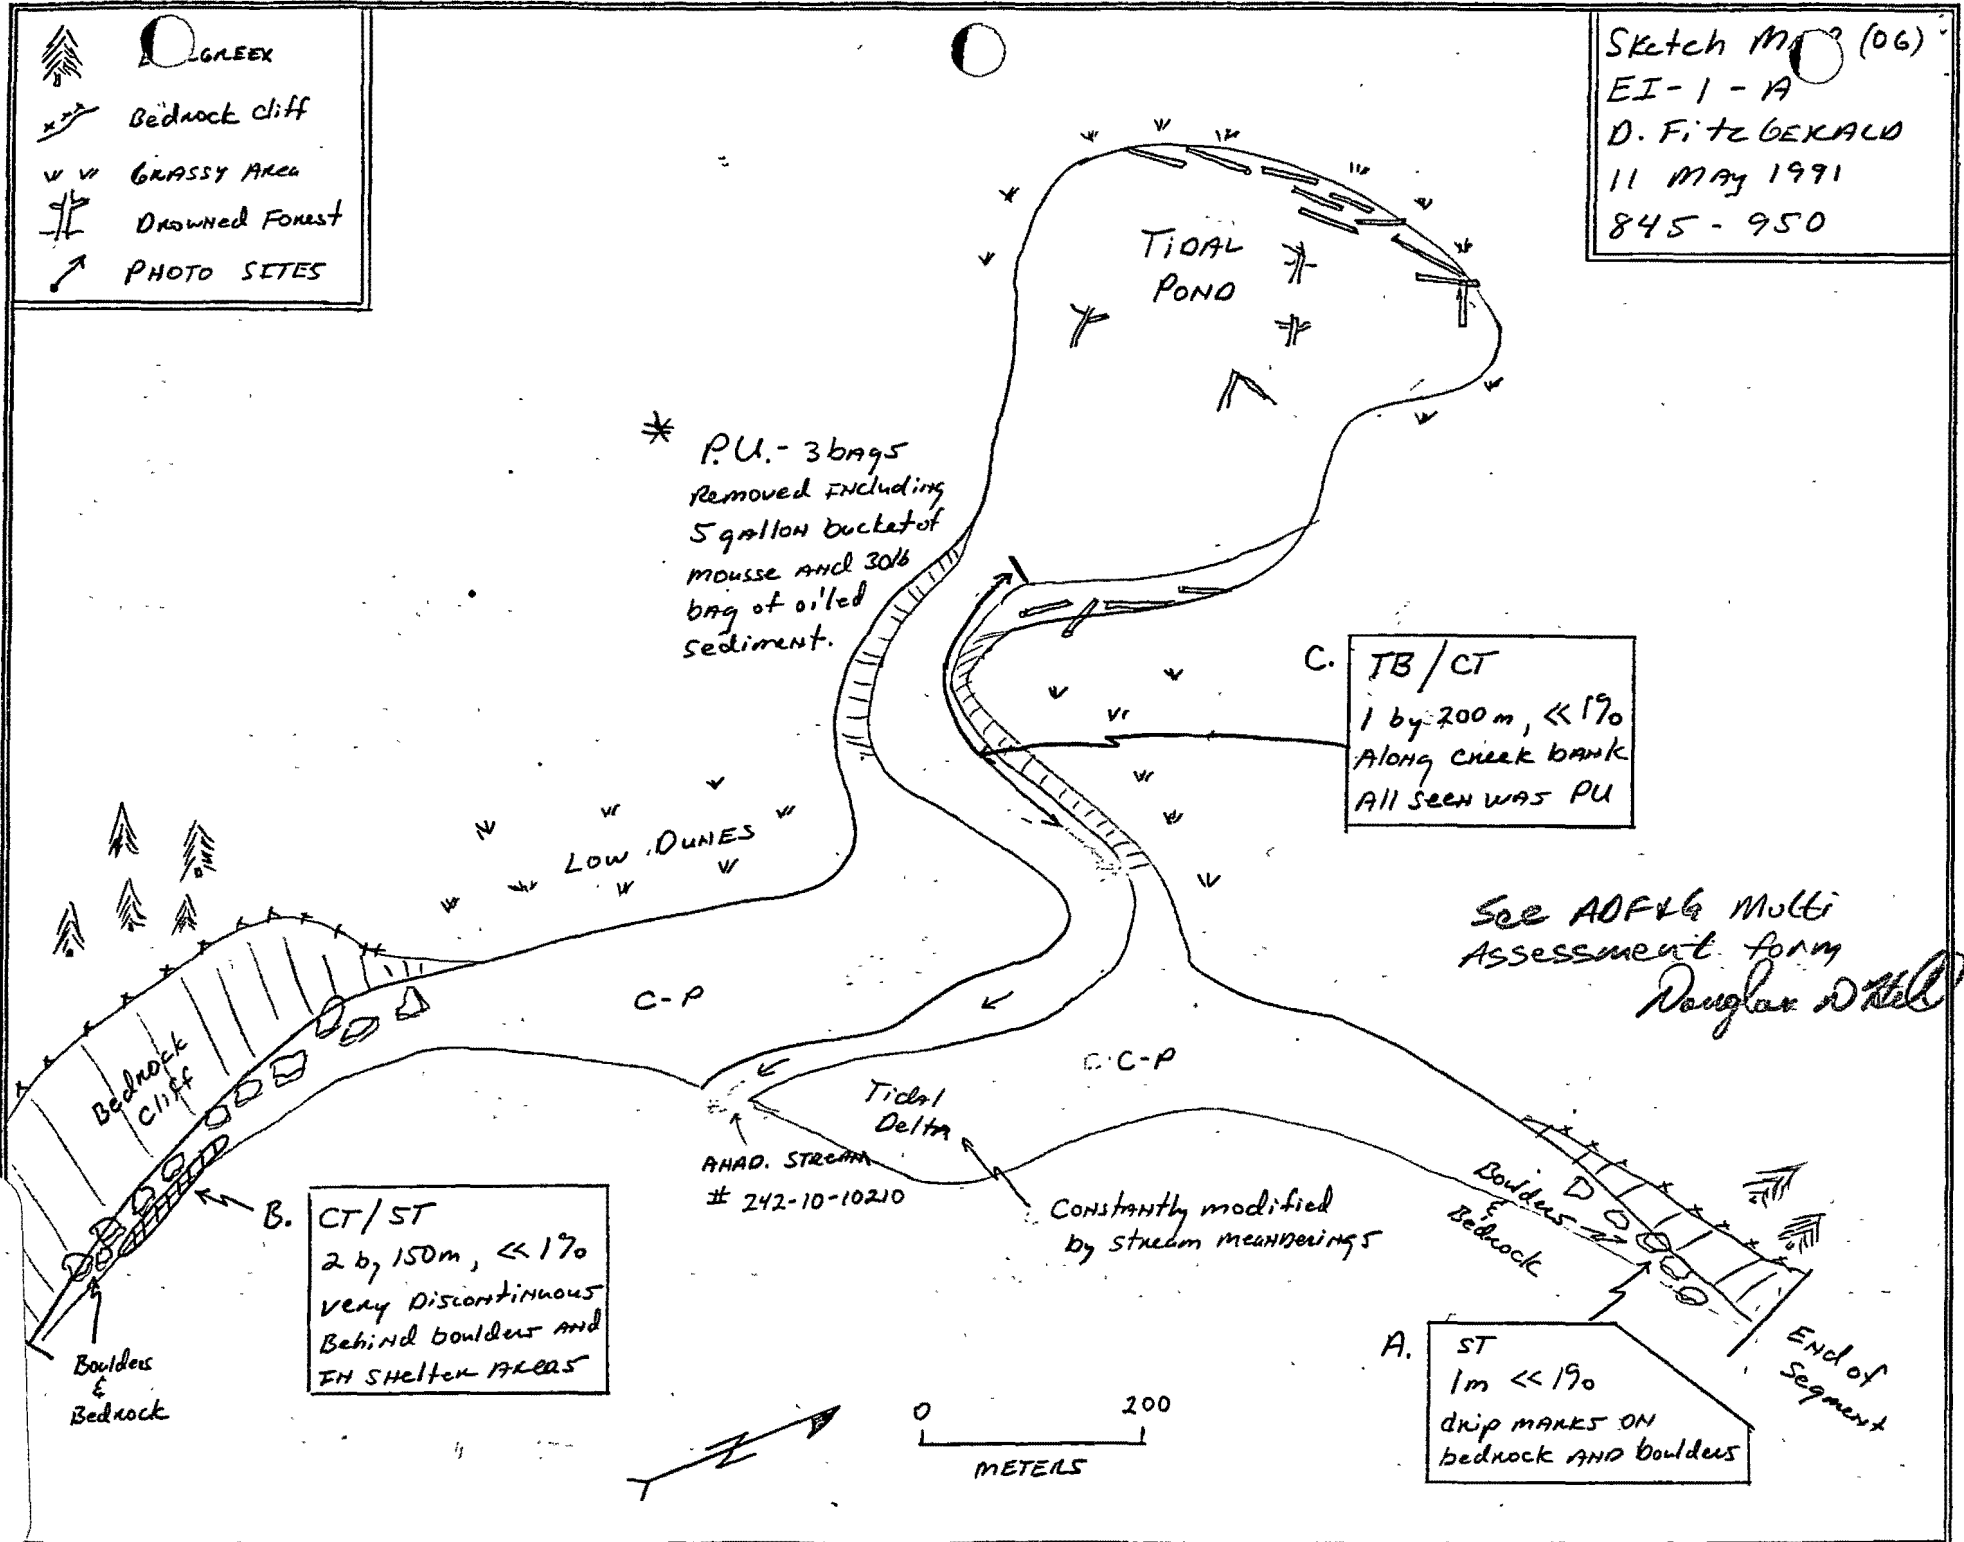 Bedrock cliff
GRASSY Area
Drowned Forest
PHOTO SITES
Sketch (06)
EI-1-A
D. FitzGERALD
11 May 1991
845 - 950
TIDAL
POND
* P.U.- 3 bags
Removed Including
5 gallon bucket of
mousse and 30 lb
bag of oiled
sediment.
C. TB/CT
1 by 200 m, << 1%
Along creek bank
All seen was PU
Low Dunes
See ADF&G Multi
Assessment form
Douglas
C-P
C-C-P
Bedrock
Cliff
Tidal
Delta
ANAD. STREAM
# 242-10-10210
Constantly modified
by stream meanderings
Boulders
&
Bedrock
B. CT/ST
2 by 150m, << 1%
very Discontinuous
Behind boulders and
In Shelter Areas
Boulders
&
Bedrock
A. ST
1m << 1%
drip marks on
bedrock and boulders
End of
Segment
N
0 200
METERS